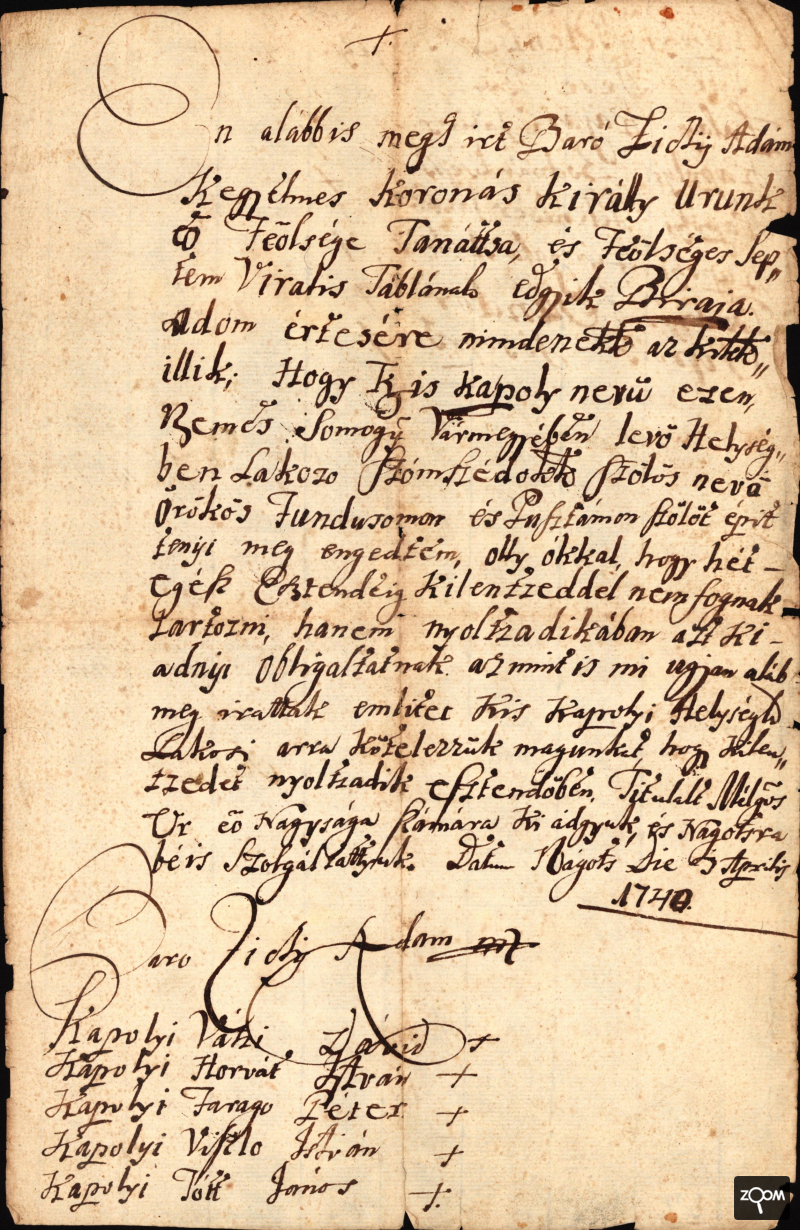 +.
Én alább is megh irt Baró Zichÿ Adám
Kegyelmes Koronás Királly Urunk
eő Feölsége Tanátsa, és Feölséges Sep„
tem Viralis Táblának edgyik Biraja.
Adom értésére mindenekk az kikk„
illik; Hogy Kis Kapoly nevű ezen,
Nemes Somogÿ Vármegyében levő Helység„
ben Lakozo Szómszédokk Szolos nevű
Örökös Fundusomon és Pusztámon szőlőt épít
tenyi meg engedtem, olly ókkal, hogy hét –
egész Esztendeig Kilentzeddel nem fognak
tartozni, hanem nyoltzadikában azt ki –
adnyi obligaltatnak. az mint is mi ugyan aláb
meg irattak emlitet Kis Kapolyi Helységh
Lakosi arra kötelezzük magunkat, hogy Kilen„
tzedet nyoltzadik esztendőben, Titulált Mlgos
Ur eő Nagysága számára ki adgyuk, és Nagotsra
bé is szolgáltattyuk. Datum Nagots Die 7 Aprilis
1740.
Baro Zichÿ Adam mp
Kapolyi Dávid +
Kapolyi Horvát István +
Kapolyi Farago Péter +
Kapolyi Viszlo István +
Kapolyi Tótt János +
ZOOM